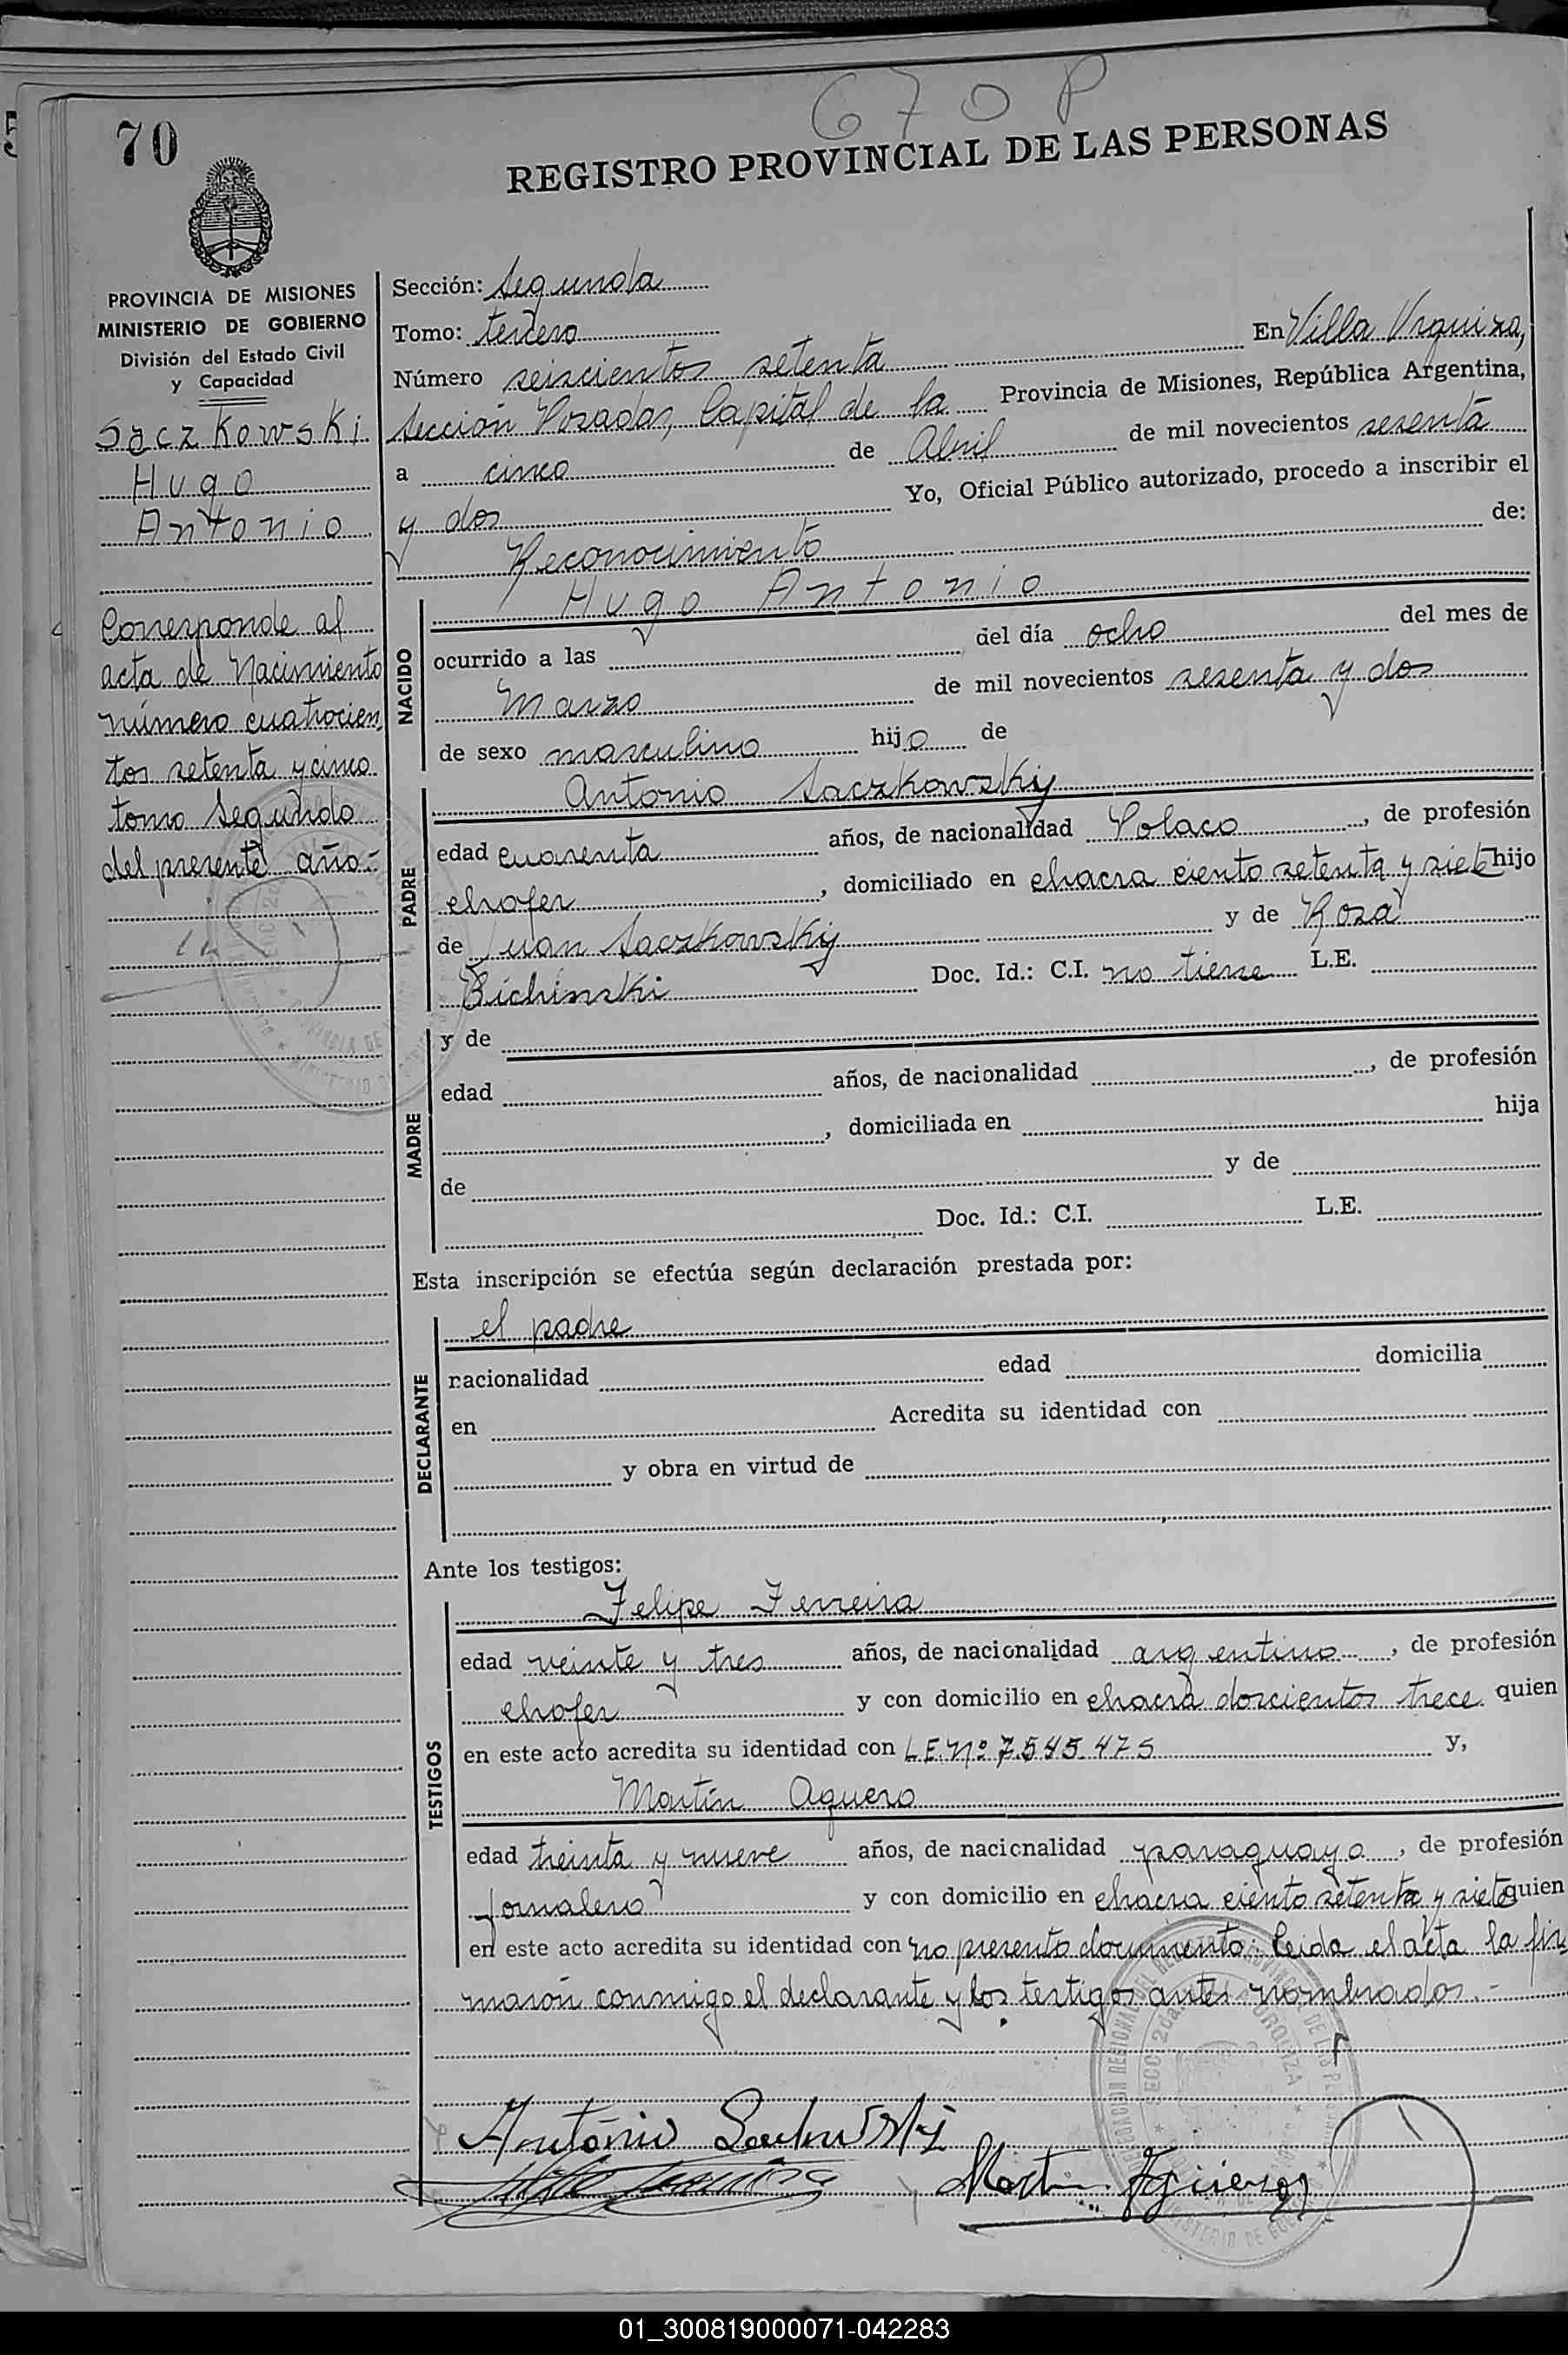 670 P
70
REGISTRO PROVINCIAL DE LAS PERSONAS
PROVINCIA DE MISIONES
MINISTERIO DE GOBIERNO
División del Estado Civil
y Capacidad
Saczkowski
Hugo
Antonio
Corresponde al
acta de Nacimiento
número cuatrocien
tos setenta y cinco
tomo Segundo
del presente año.-
Sección: Segunda
Tomo: tercero
Número seiscientos setenta En Villa Urquiza,
Sección Posadas, Capital de la Provincia de Misiones, República Argentina,
a cinco de Abril de mil novecientos sesenta
y dos Yo, Oficial Público autorizado, procedo a inscribir el
Reconocimiento de:
NACIDO
Hugo Antonio
ocurrido a las del día ocho del mes de
Marzo de mil novecientos sesenta y dos
de sexo masculino hijo de
PADRE
Antonio Saczkowsky
edad cuarenta años, de nacionalidad Polaco, de profesión
chofer, domiciliado en chacra ciento setenta y siete hijo
de Juan Saczkowsky y de Rosa
Bichinski Doc. Id.: C.I. no tiene L.E.
MADRE
y de
edad años, de nacionalidad , de profesión
, domiciliada en hija
de y de
Doc. Id.: C.I. L.E.
Esta inscripción se efectúa según declaración prestada por:
DECLARANTE
el padre
nacionalidad edad domicilia
en Acredita su identidad con
y obra en virtud de
Ante los testigos:
TESTIGOS
Felipe Ferreira
edad veinte y tres años, de nacionalidad argentino, de profesión
chofer y con domicilio en chacra doscientos trece quien
en este acto acredita su identidad con L.E. Nº 7.545.475 y,
Martín Aguero
edad treinta y nueve años, de nacionalidad paraguayo, de profesión
jornalero y con domicilio en chacra ciento setenta y siete quien
en este acto acredita su identidad con no presento documento: leida el acta la fir
maron conmigo el declarante y los testigos antes nombrados.-
Antonio
Martin Aguero
01_300819000071-042283